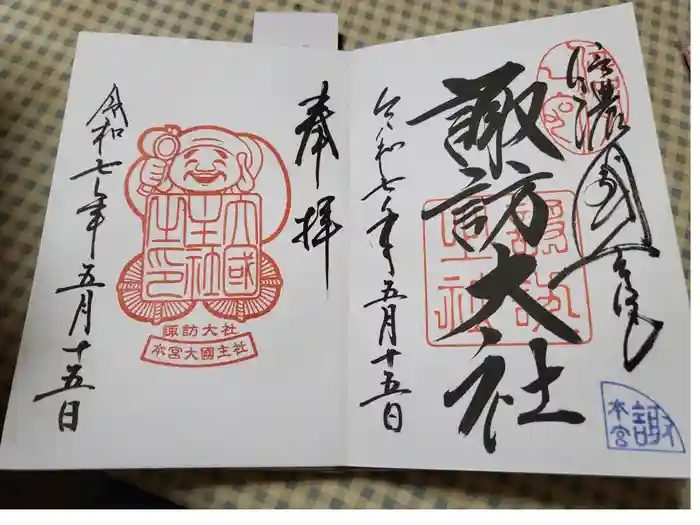 信濃國一之宮
諏訪大社
令和七年五月十五日
本宮
奉拝
大國
主社
之印
諏訪大社
本宮大國主社
令和七年五月十五日